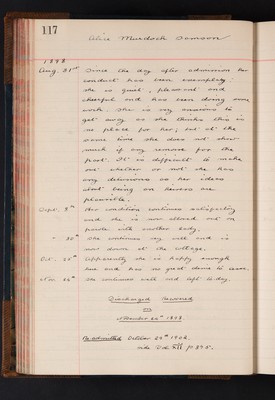 117
Alice Murdoch Samson
1898
Aug. 31st Since the day after admission her
conduct has been exemplary;
she is quiet, pleasant and
cheerful and has been doing some
work. She is very anxious to
get away as she thinks this is
no place for her; but at the
same time she does not show
much if any remorse for the
past. It is difficult to make
out whether or not she has
any delusions as her ideas
about being on are
plausible.
Sept. 8th Her condition continues satisfactory
and she is now allowed out on
parole with another lady.
" 30th She continues very well and is
now down at the cottage.
Oct. 25th Apparently she is happy enough
here and has no great desire to leave.
Nov. 26th She continues well and left to-day.
Discharged Recovered
on
November 26th 1898.
Re-admitted October 29th 1906.
vide Vol. p 895.